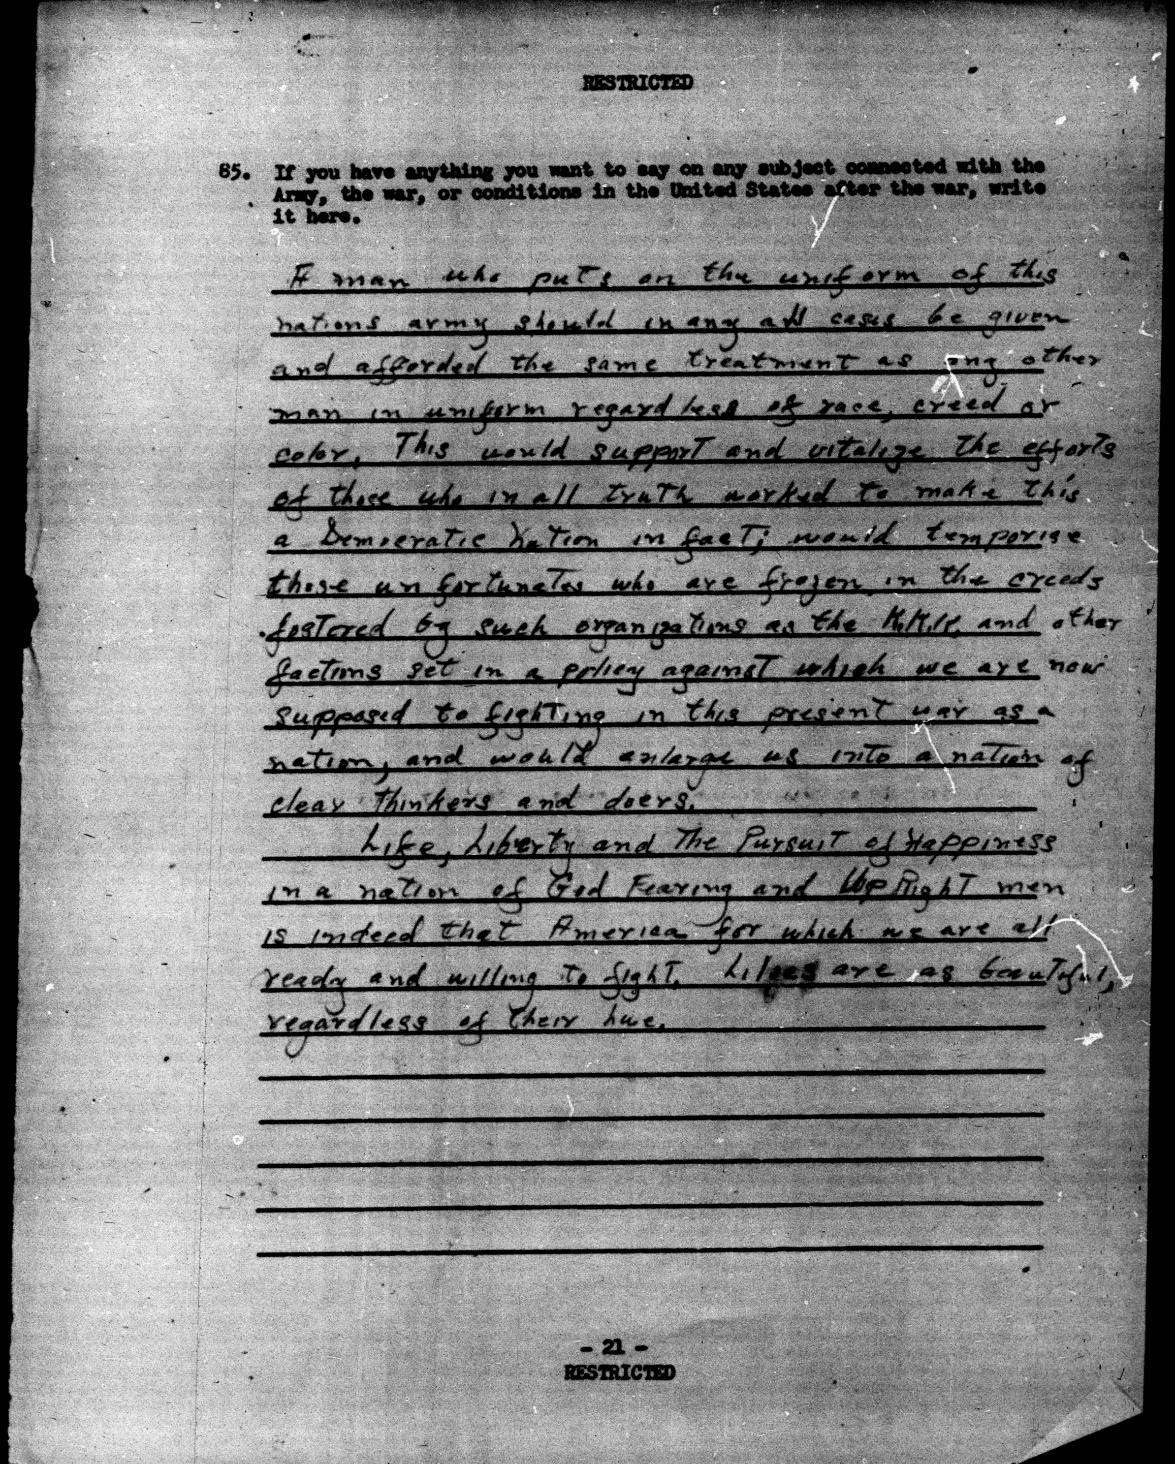 RESTRICTED
85. If you have anything you want to say on any subject connected with the
Army, the war, or conditions in the United States after the war, write
it here.
A man who puts on the uniform of this
nations army should in any all cases be given
and afforded the same treatment as any other
man in uniform regardless of race, creed or
color. This would support and vitalize the efforts
of those who in all truth worked to make this
a Democratic Nation in fact; would temporise
those unfortunates who are frozen in the creeds
fostered by such organizations as the K.K.K. and other
factions set in a policy against which we are now
supposed to fighting in this present war as a
nation, and would enlarge us into a nation of
clear thinkers and doers.
Life, Liberty and The Pursuit of Happiness
in a nation of God Fearing and UpRight men
is indeed that America for which we are all
ready and willing to fight. Lilies are as beautiful,
regardless of their hue.
- 21 -
RESTRICTED